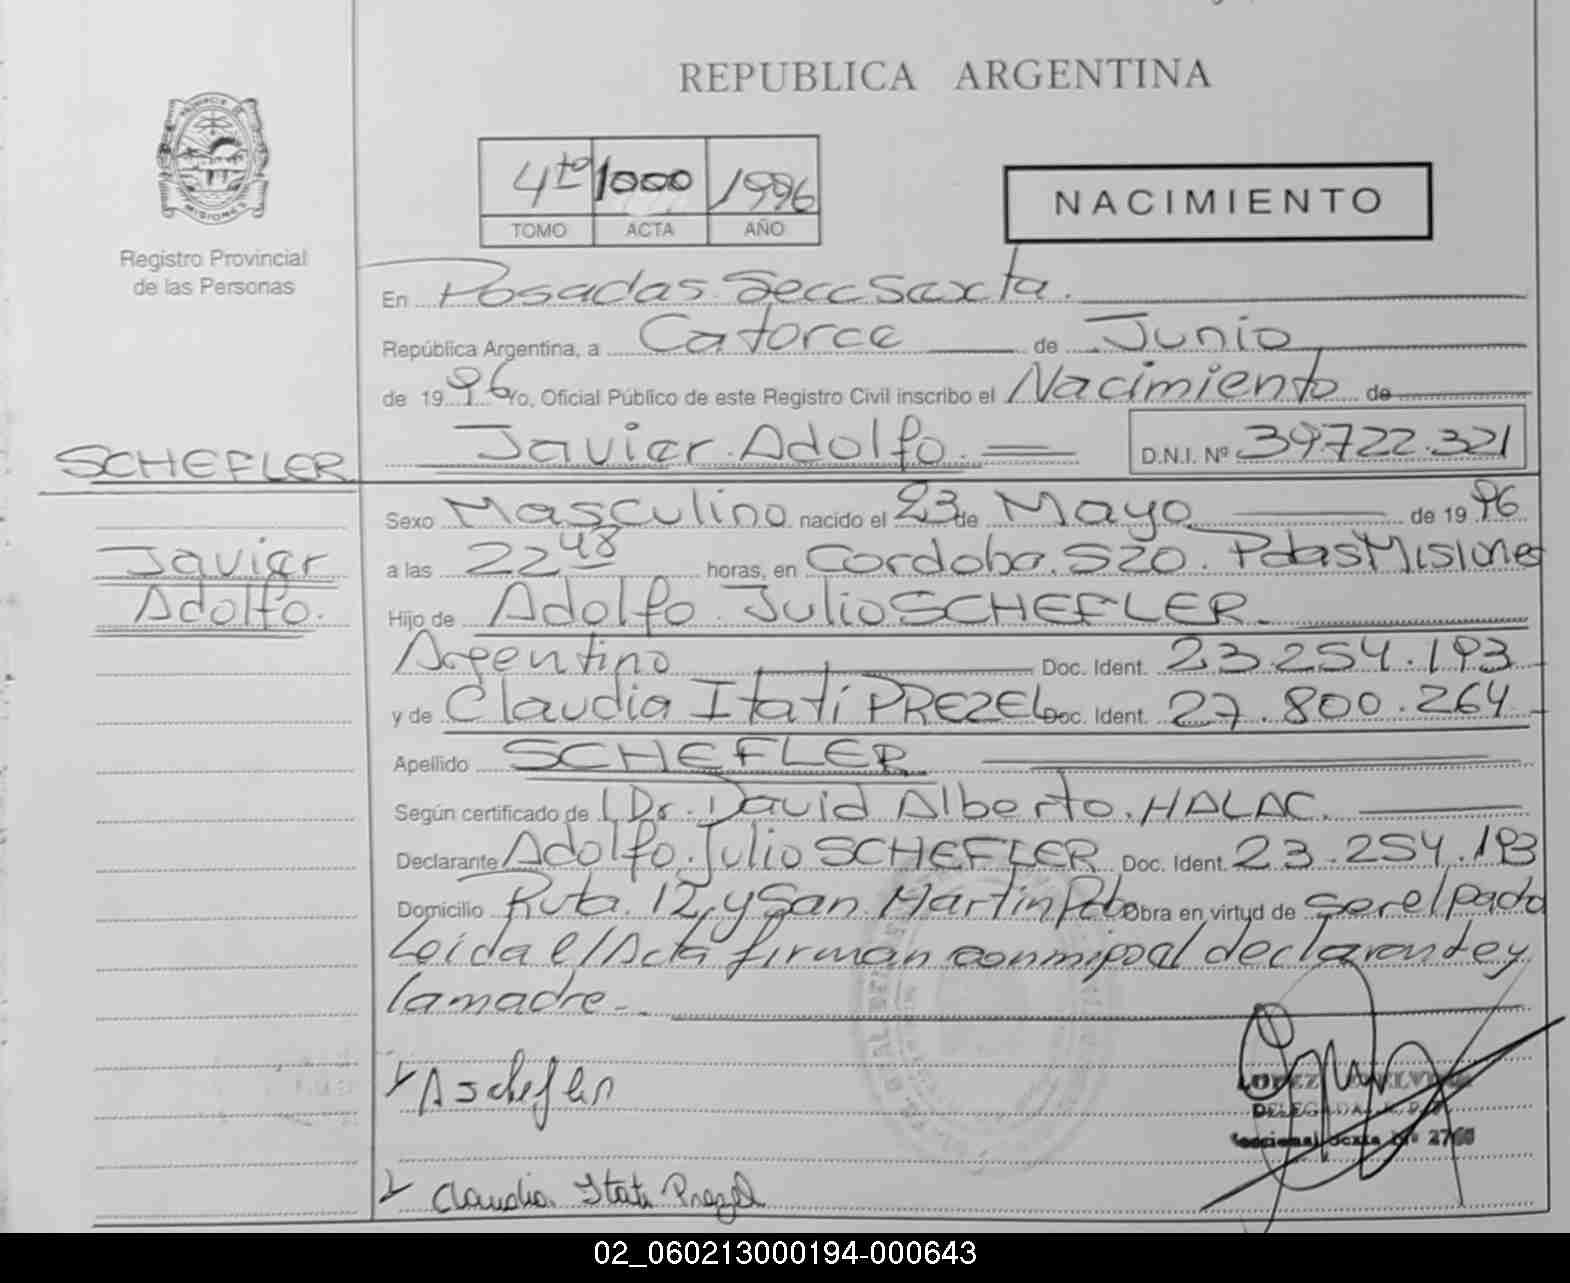 REPUBLICA ARGENTINA
PROVINCIA DE MISIONES
Registro Provincial
de las Personas
4to 1000 1996
TOMO ACTA AÑO
NACIMIENTO
En Posadas Secc Sexta.
República Argentina, a Catorce de Junio
de 1996 Yo, Oficial Público de este Registro Civil inscribo el Nacimiento de
SCHEFLER
Javier Adolfo. D.N.I. Nº 39722.321
Sexo Masculino nacido el 23 de Mayo de 1996
Javier
Adolfo.
a las 22 48 horas, en Cordoba. 520. Pdas Misiones
Hijo de Adolfo Julio SCHEFLER.
Argentino Doc. Ident. 23.254.193
y de Claudia Itatí PREZEL Doc. Ident. 27.800.264
Apellido SCHEFLER
Según certificado de Dr. David Alberto. HALAC.
Declarante Adolfo. Julio SCHEFLER Doc. Ident. 23.254.193
Domicilio Ruta. 12, y San Martin Obra en virtud de ser el padre
Leida el Acta firman conmigo el declarante y
la madre.
A Schefler
LOPEZ
DELEGADA
Seccional Sexta Nº 2760
Claudia Itati Prezel
02_060213000194-000643